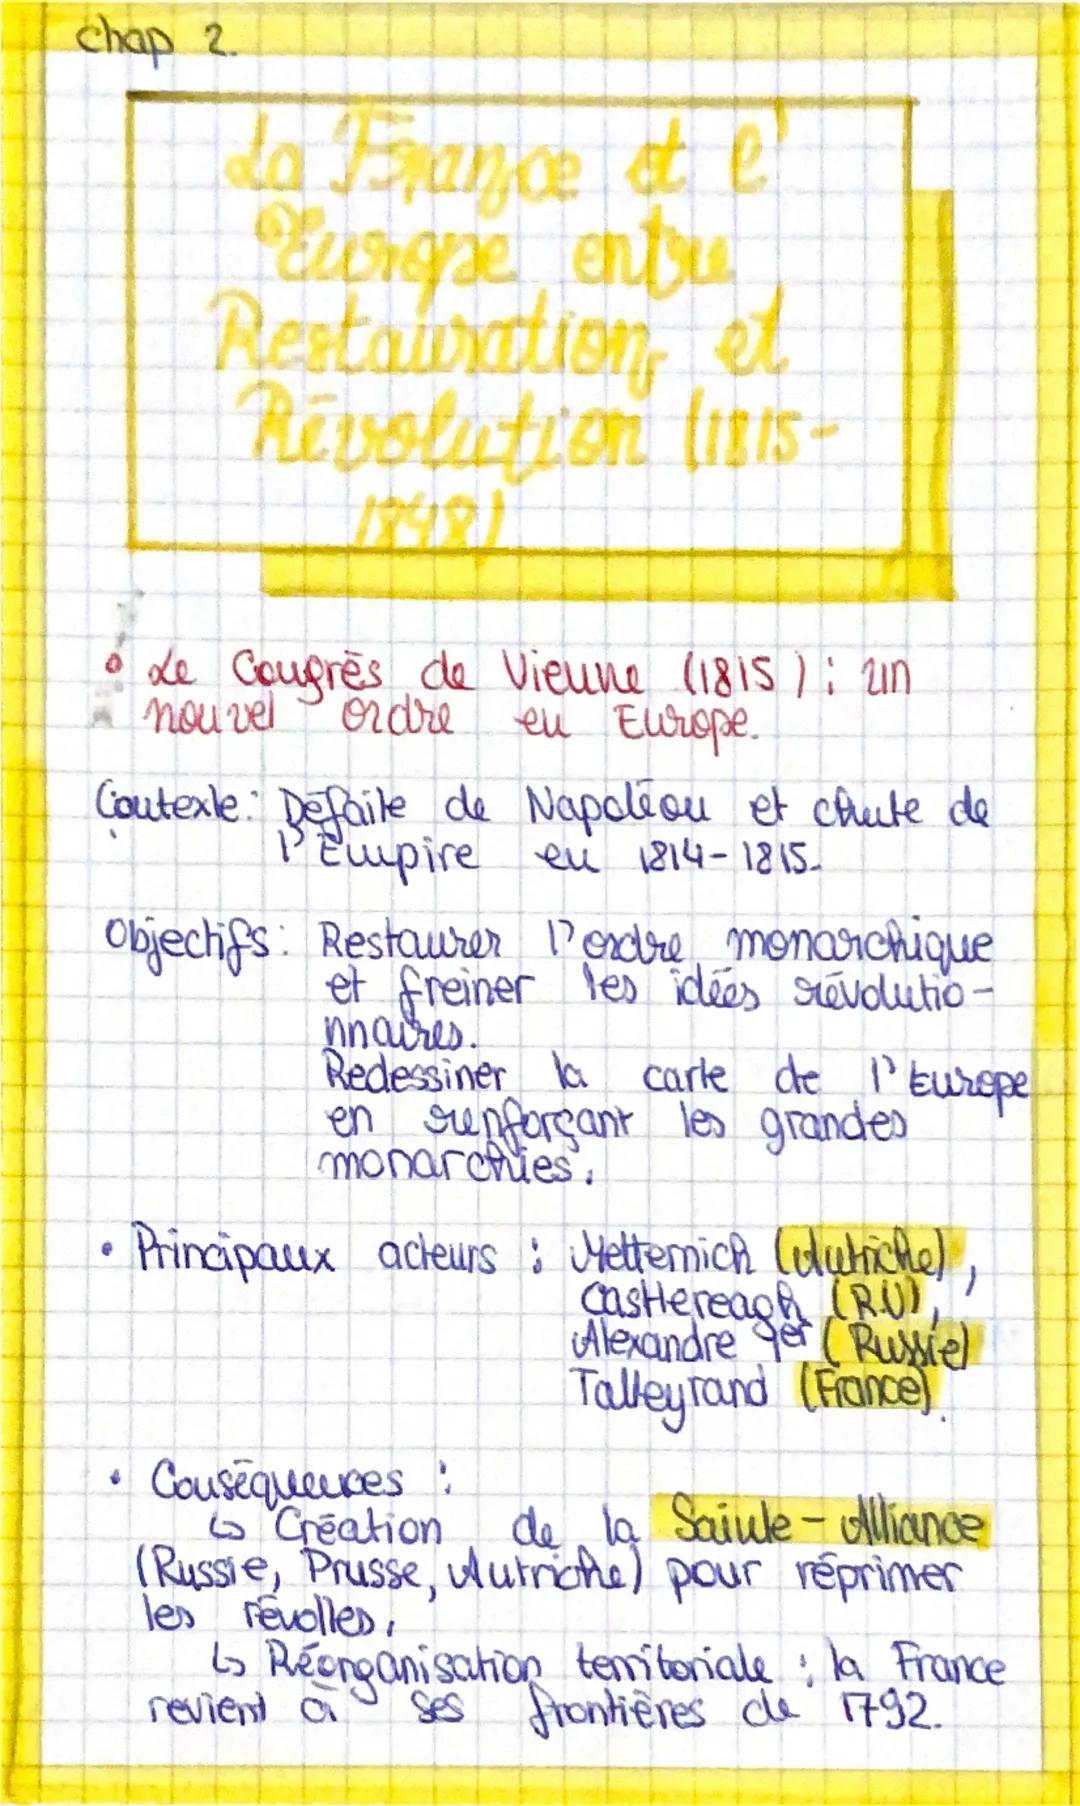 chap 2.
La France et l'
Europe entre
Restauration et
Révolution (1815-
1848)
• Le Congrès de Vienne (1815) : un
nouvel ordre en Europe.
Contexte : Défaite de Napoléon et chute de
l'Empire en 1814-1815.
Objectifs : Restaurer l'ordre monarchique
et freiner les idées révolutio-
nnaires.
Redessiner la carte de l'Europe
en renforçant les grandes
monarchies.
• Principaux acteurs : Metternich (Autriche),
Castlereagh (R.U),
Alexandre 1er (Russie)
Talleyrand (France).
• Conséquences :
↳ Création de la Sainte-Alliance
(Russie, Prusse, Autriche) pour réprimer
les révoltes.
↳ Réorganisation territoriale : la France
revient à ses frontières de 1792.